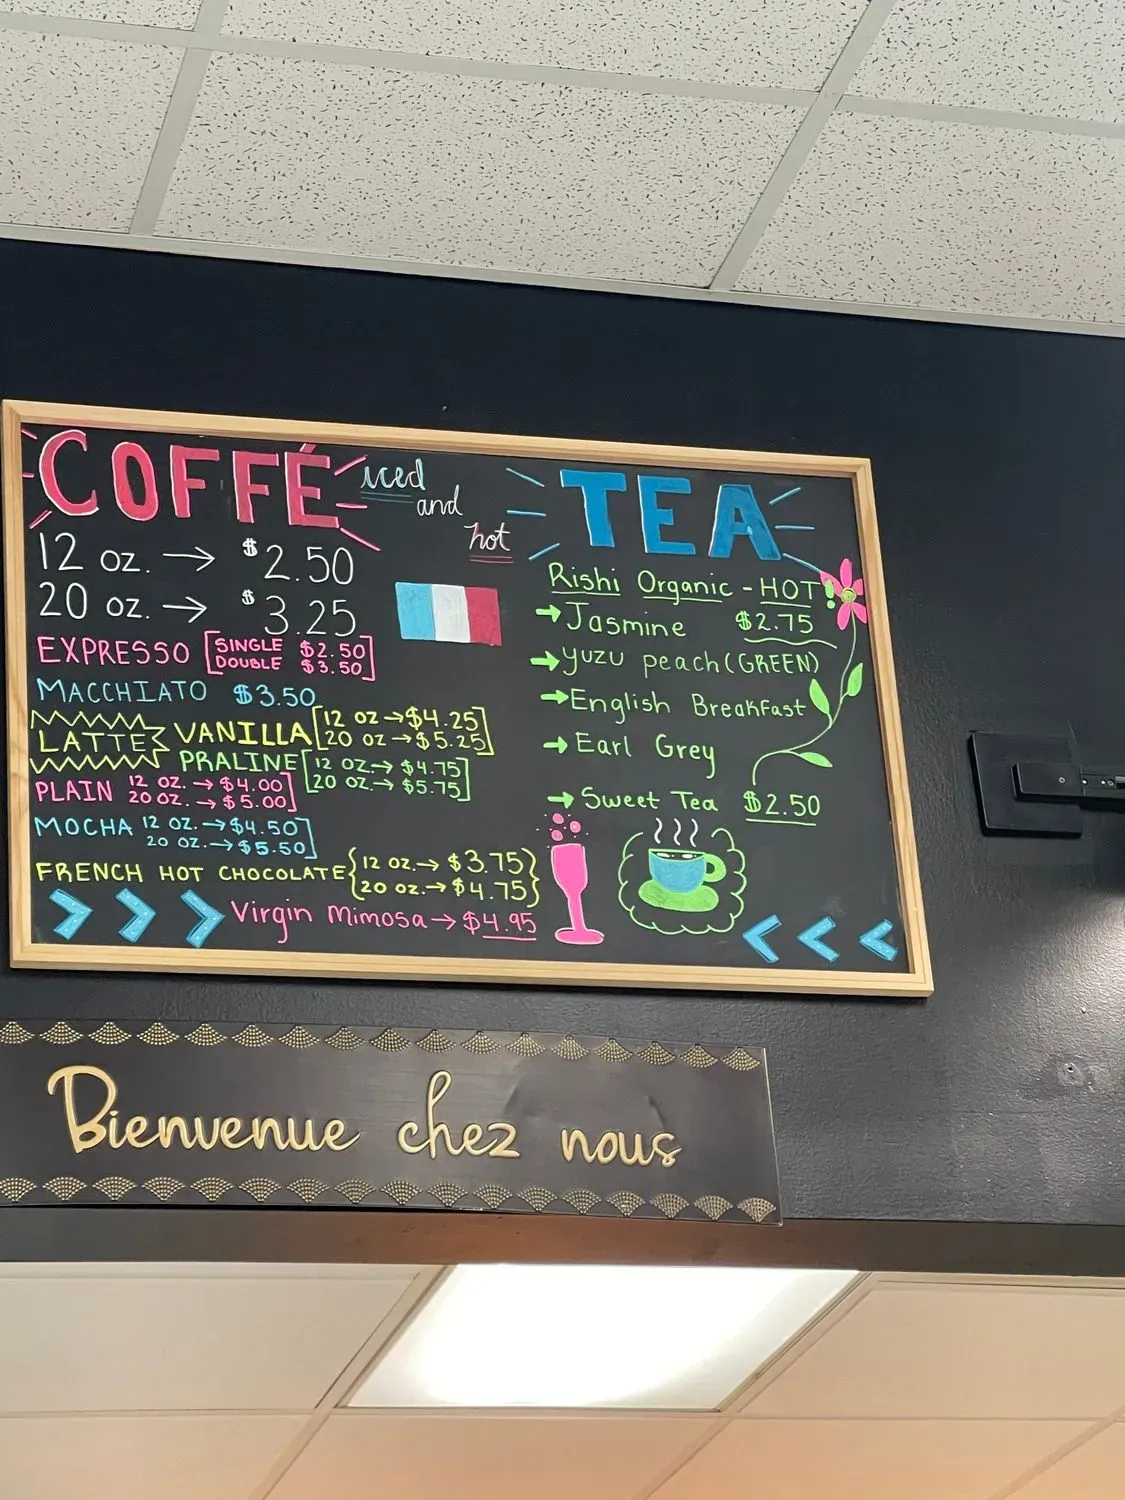 COFFÉ iced and hot
12 oz. → $2.50
20 oz. → $3.25
EXPRESSO [SINGLE $2.50]
[DOUBLE $3.50]
MACCHIATO $3.50
LATTE VANILLA [12 OZ → $4.25]
[20 OZ → $5.25]
PRALINE [12 OZ. → $4.75]
[20 OZ. → $5.75]
PLAIN 12 OZ. → $4.00]
20 OZ. → $5.00]
MOCHA 12 OZ. → $4.50]
20 OZ. → $5.50]
FRENCH HOT CHOCOLATE {12 OZ. → $3.75}
{20 OZ. → $4.75}
Virgin Mimosa → $4.95
TEA
Rishi Organic - HOT!
→ Jasmine $2.75
→ yuzu peach (GREEN)
→ English Breakfast
→ Earl Grey
→ Sweet Tea $2.50
Bienvenue chez nous